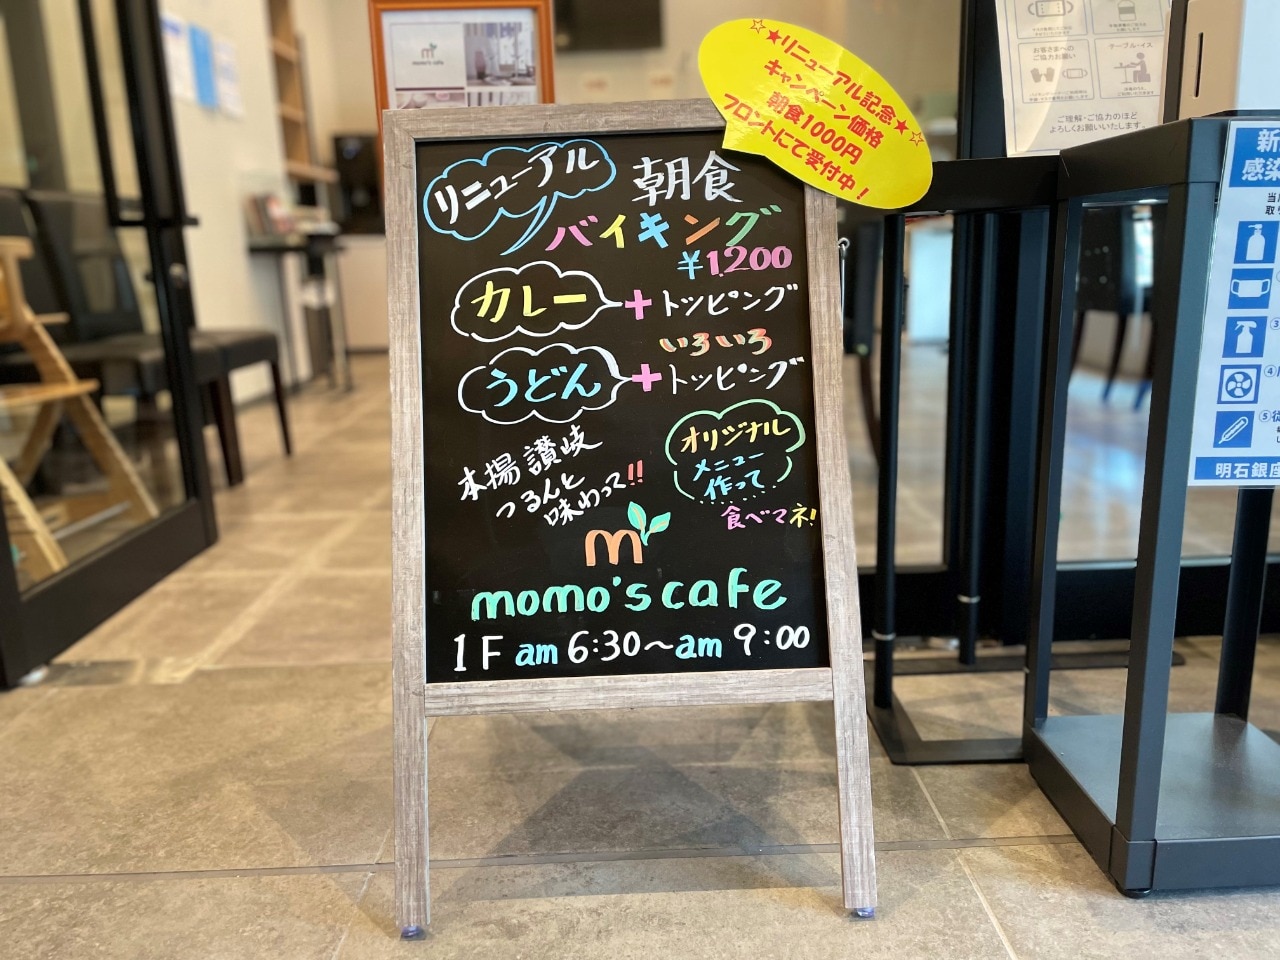 ☆★リニューアル記念★☆
キャンペーン価格
朝食1000円
フロントにて受付中！
リニューアル
朝食
バイキング
¥1,200
カレー + トッピング
いろいろ
うどん + トッピング
本場讃岐
つるんと
味わって!!
オリジナル
メニュー
作って
食べマネ!
m
momo's cafe
1F am 6:30～am 9:00
m
momo's cafe
お客さまへの
ご協力お願い
テーブル・イス
ご理解・ご協力のほど
よろしくお願いいたします。
新
感染
当
取
③
④
⑤従
明石銀座